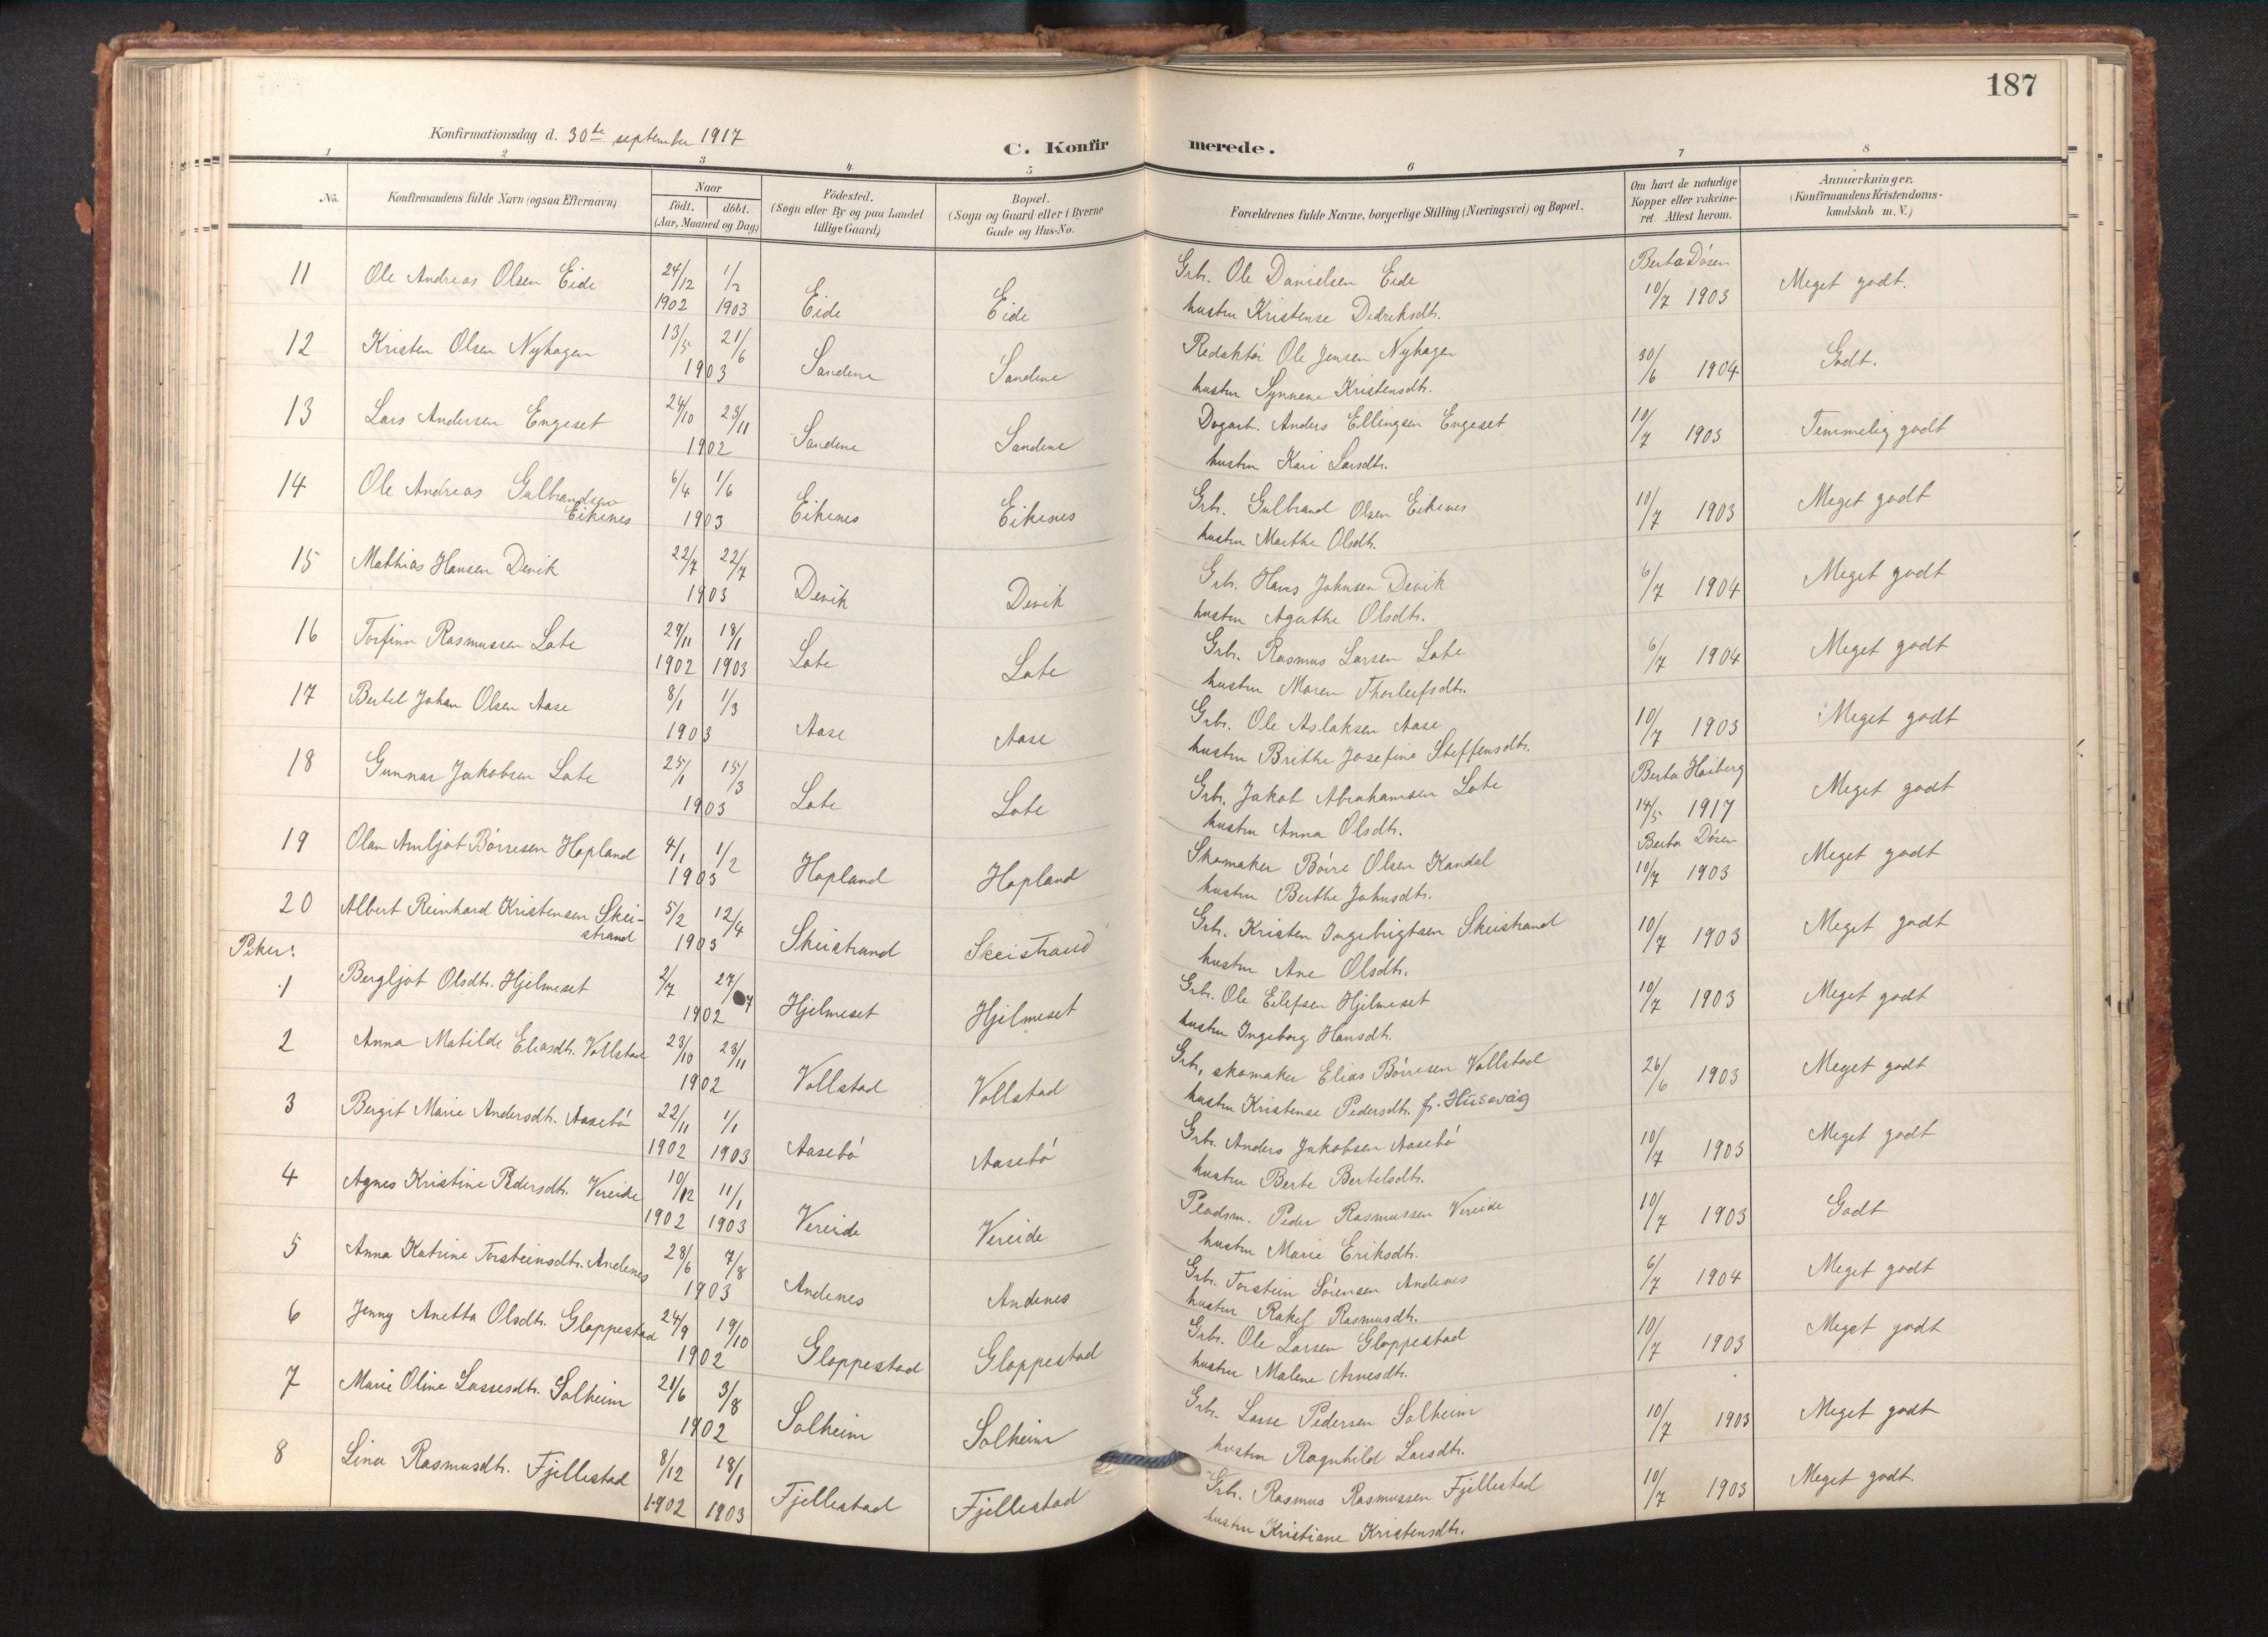 187
Konfirmationsdag d. 30te september 1917
C. Konfirmerede.
1 2 3 4 5 6 7 8
No.
Konfirmandens fulde Navn (ogsaa Efternavn)
Naar
födt. döbt.
(Aar, Maaned og Dag)
Födested.
(Sogn eller By og paa Landet
tillige Gaard)
Bopæl.
(Sogn og Gaard eller i Byerne
Gade og Hus-No.
Forældrenes fulde Navne, borgerlige Stilling (Næringsvei) og Bopæl.
Om havt de naturlige
Kopper eller vakcine-
ret. Attest herom.
Anmærkninger.
(Konfirmandens Kristendoms-
kundskab m. V.)
11 Ole Andreas Olsen Eide 24/12 1902 1/2 1903 Eide Eide Grbr. Ole Danielsen Eide Berta Døsen 10/7 1903 Meget godt.
hustru Kristense Didriksdtr.
12 Kristen Olsen Nyhagen 13/5 21/6 1903 Sandene Sandene Redaktør Ole Jensen Nyhagen 30/6 1904 Godt.
hustru Synneve Kristensdtr.
13 Lars Andersen Engeset 24/10 23/11 1902 Sandene Sandene Dagarb. Anders Ellingsen Engeset 10/7 1903 Temmelig godt
hustru Kari Larsdtr.
14 Ole Andreas Gulbrandsen
Eikenes 6/4 1/6 1903 Eikenes Eikenes Grbr. Gulbrand Olsen Eikenes 10/7 1903 Meget godt
hustru Marthe Olsdtr.
15 Mathias Hansen Devik 22/7 22/7 1903 Devik Devik Grbr. Hans Johnsen Devik 6/7 1904 Meget godt
hustru Agathe Olsdtr.
16 Torfinn Rasmussen Lote 29/11 1902 18/1 1903 Lote Lote Grbr. Rasmus Larsen Lote 6/7 1904 Meget godt
hustru Maren Thorleifsdtr.
17 Bertel Johan Olsen Aase 8/1 1/3 1903 Aase Aase Grbr. Ole Aslaksen Aase 10/7 1903 Meget godt
hustru Brithe Josefine Steffensdtr.
18 Gunnar Jakobsen Lote 25/1 15/3 1903 Lote Lote Grbr. Jakob Abrahamsen Lote Berta Heiberg 14/5 1917 Meget godt
hustru Anna Olsdtr.
19 Olav Arnljot Børresen Hopland 4/1 1/2 1903 Hopland Hopland Skomaker Børre Olsen Kandal Berta Døsen 10/7 1903 Meget godt
hustru Berthe Johnsdtr.
20 Albert Reinhard Kristensen Skei-
strand 5/2 12/4 1903 Skeistrand Skeistrand Grbr. Kristen Ingebrigtsen Skeistrand 10/7 1903 Meget godt
hustru Ane Olsdtr.
Piker:
1 Bergljot Olsdtr. Hjelmeset 2/7 27/7 1902 Hjelmeset Hjelmeset Grbr. Ole Eilefsen Hjelmeset 10/7 1903 Meget godt
hustru Ingeborg Hansdtr.
2 Anna Matilde Eliasdtr. Vollstad 23/10 23/11 1902 Vollstad Vollstad Grbr., skomaker Elias Børresen Vollstad 26/6 1903 Meget godt
hustru Kristense Pedersdtr. f. Husevåg
3 Bergit Marie Andersdtr. Aasebø 22/11 1902 1/1 1903 Aasebø Aasebø Grbr. Anders Jakobsen Aasebø 10/7 1903 Meget godt
hustru Berte Bertelsdtr.
4 Agnes Kristine Pedersdtr. Vereide 10/12 1902 11/1 1903 Vereide Vereide Pladsm. Peder Rasmussen Vereide 10/7 1903 Godt
hustru Marie Eriksdtr.
5 Anna Katrine Torsteinsdtr. Andenes 28/6 7/8 1903 Andenes Andenes Grbr. Torstein Sørensen Andenes 6/7 1904 Meget godt
hustru Rakel Rasmusdtr.
6 Jenny Anetta Olsdtr. Gloppestad 24/9 19/10 1902 Gloppestad Gloppestad Grbr. Ole Larsen Gloppestad 10/7 1903 Meget godt
hustru Malene Arnesdtr.
7 Marie Oline Lassesdtr. Solheim 21/6 3/8 1902 Solheim Solheim Grbr. Lasse Pedersen Solheim 10/7 1903 Meget godt
hustru Ragnhild Larsdtr.
8 Lina Rasmusdtr. Fjellestad 8/12 1902 18/1 1903 Fjellestad Fjellestad Grbr. Rasmus Rasmussen Fjellestad 10/7 1903 Meget godt.
hustru Kristiane Kristensdtr.